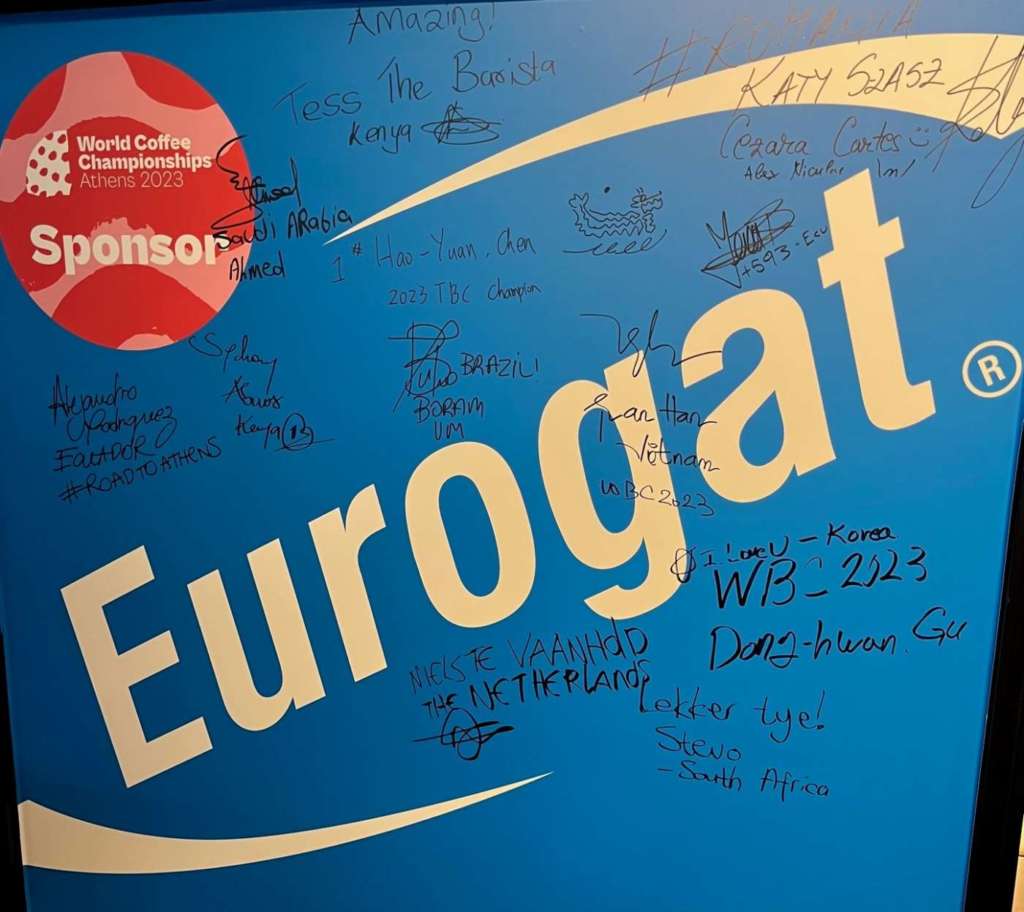 Amazing!
Tess The Barista
Kenya
#ROMANIA
KATY SZASZ
Cezara Cartes
Alex
World Coffee
Championships
Athens 2023
Sponsor
Saudi ARabia
Ahmed
1# Hao-Yuan. Chen
2023 TBC Champion
+593-Ecu
Alejandro
Rodriguez
ECUADOR
#ROADTOATHENS
Kenya
BRAZIL!
BORAM
UM
Han
Vietnam
WBC2023
Eurogat®
I Love U - Korea
WBC 2023
Dong-hwan. Gu
NIELS TE VAANHOLD
THE NETHERLANDS
Lekker tye!
Stevo
- South Africa